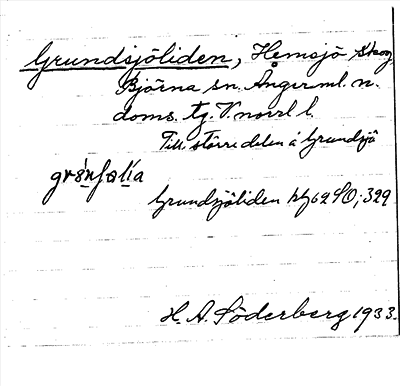 Grundsjöliden, Hemsjö skog,
Björna sn. Ångerml. n.
doms. tg. V. norrl l.
Till större delen å Grundsjö
Grundsjöliden kbf 62 SO; 329
H. A. Söderberg 1933.